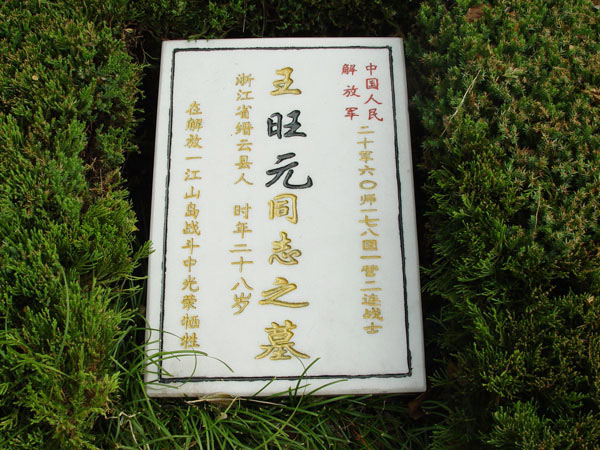 中国人民
解放军
二十军六〇师一七八团一营二连战士
王旺元同志之墓
浙江省缙云县人 时年二十八岁
在解放一江山岛战斗中光荣牺牲